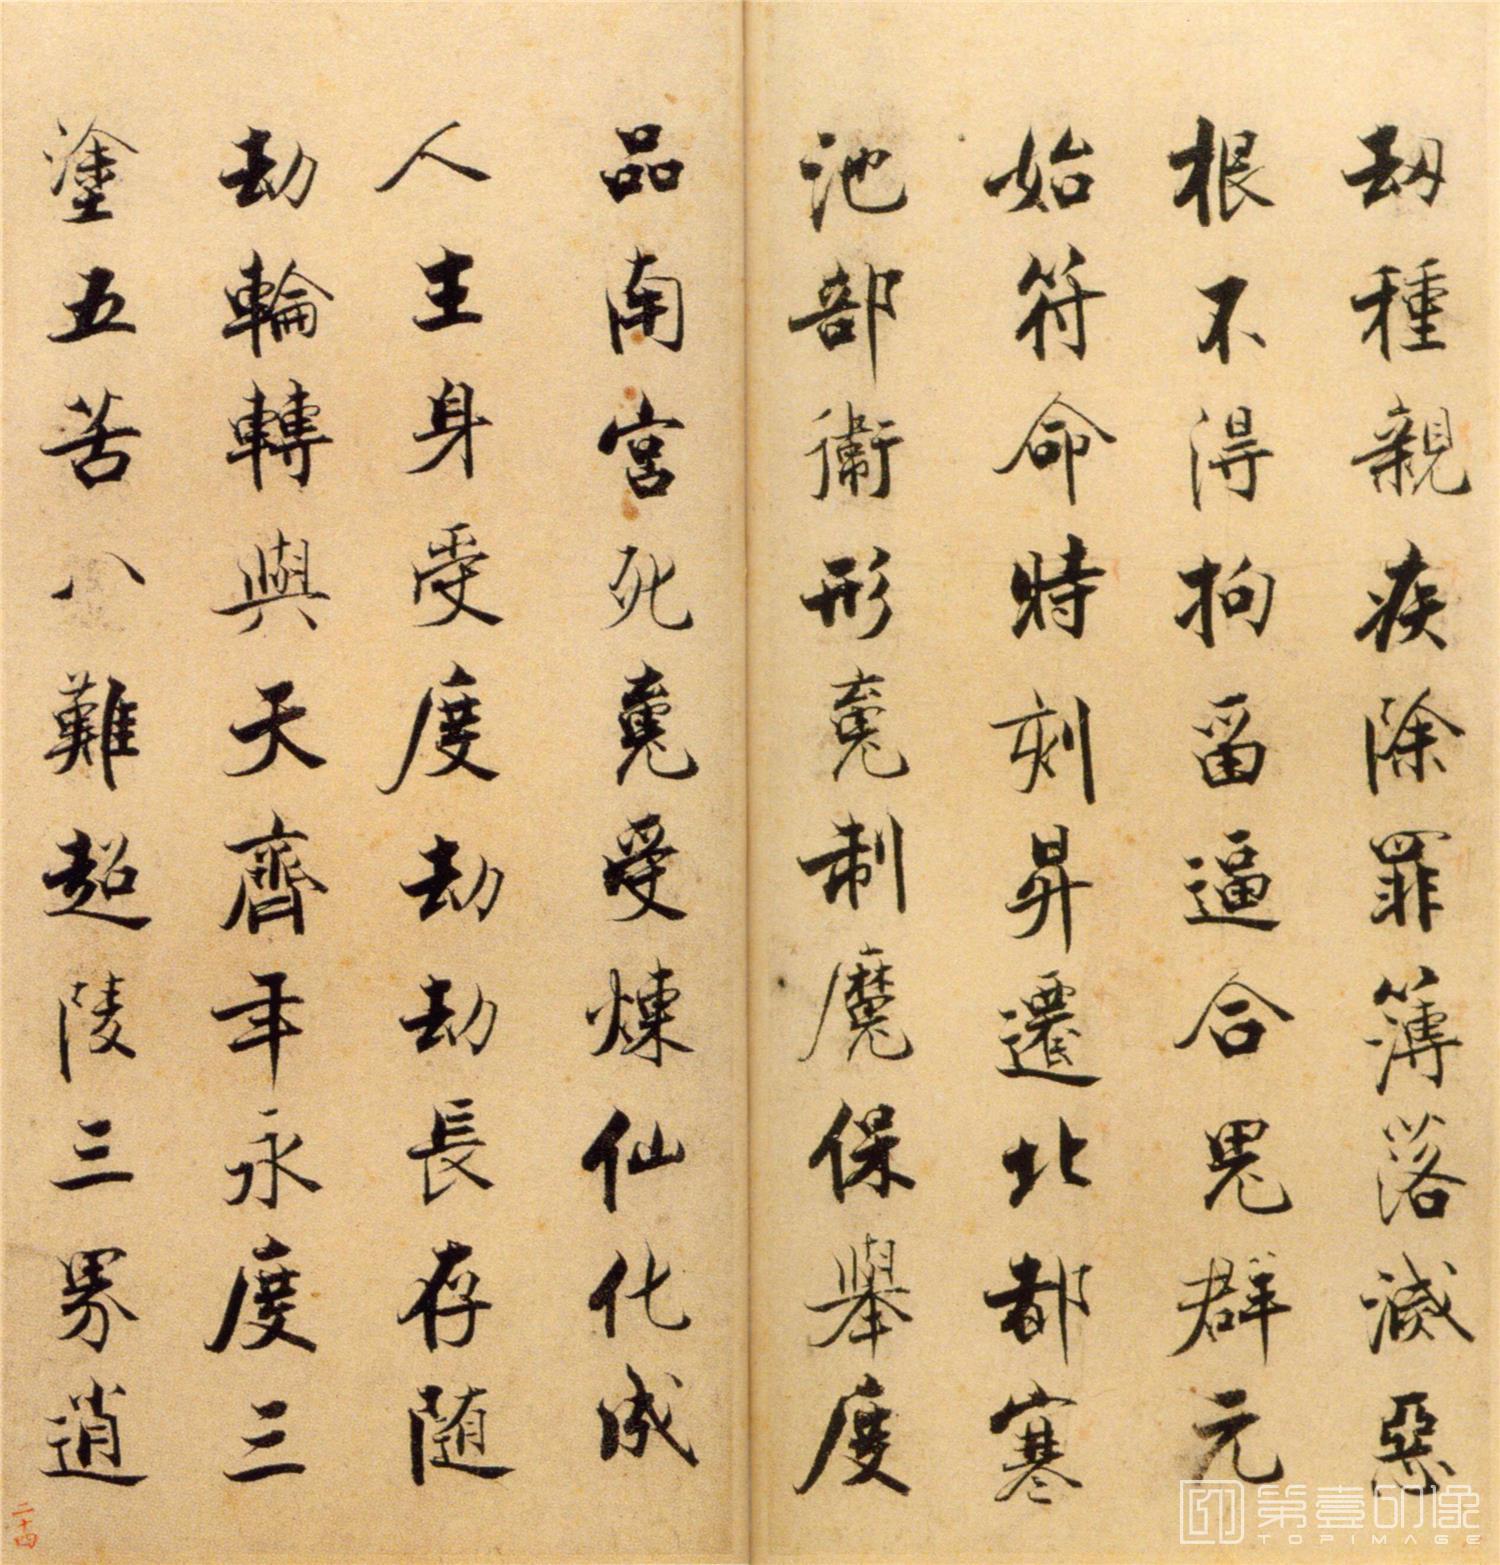 劫種親疾除罪簿落滅惡
根不得拘留逼合鬼群元
始符命時刻昇遷北都寒
池部衛形魂制魔保舉度
品南宮死魂受煉仙化成
人主身受度劫劫長存随
劫輪轉與天齊年永度三
塗五苦八難超陵三界逍
二十四
第壹印像
TOPIMAGE